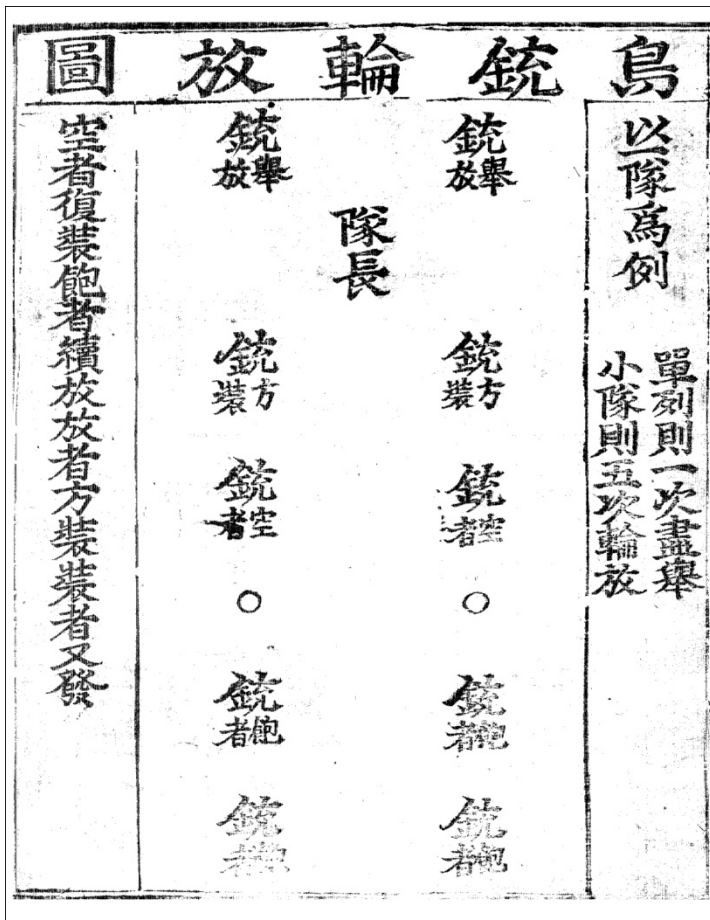 鳥銃輪放圖
以一隊爲例
單列則一次盡舉
小隊則五次輪放
銃舉放
銃方裝
銃空者
○
銃飽者
銃飽者
隊長
銃舉放
銃方裝
銃空者
○
銃飽者
銃者
空者復裝飽者續放放者方裝裝者又發